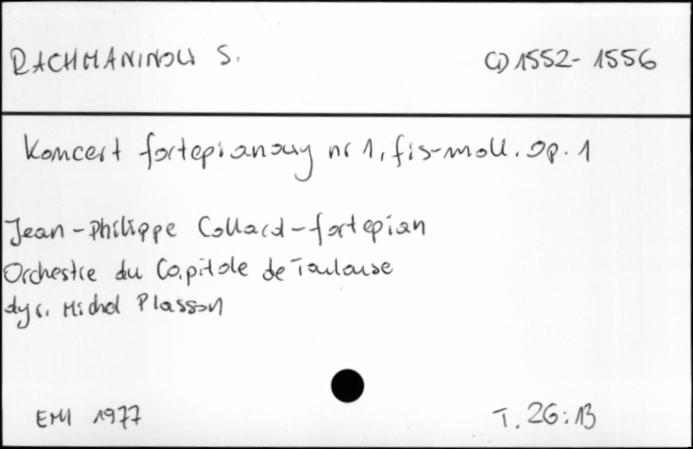 RACHMANINOW S. CD 1552-1556
Koncert fortepianowy nr 1, fis-moll. Op. 1
Jean-Philippe Collard-fortepian
Orchestre du Capitole de Toulouse
dyr. Michel Plasson
EMI 1977 T. 26:13